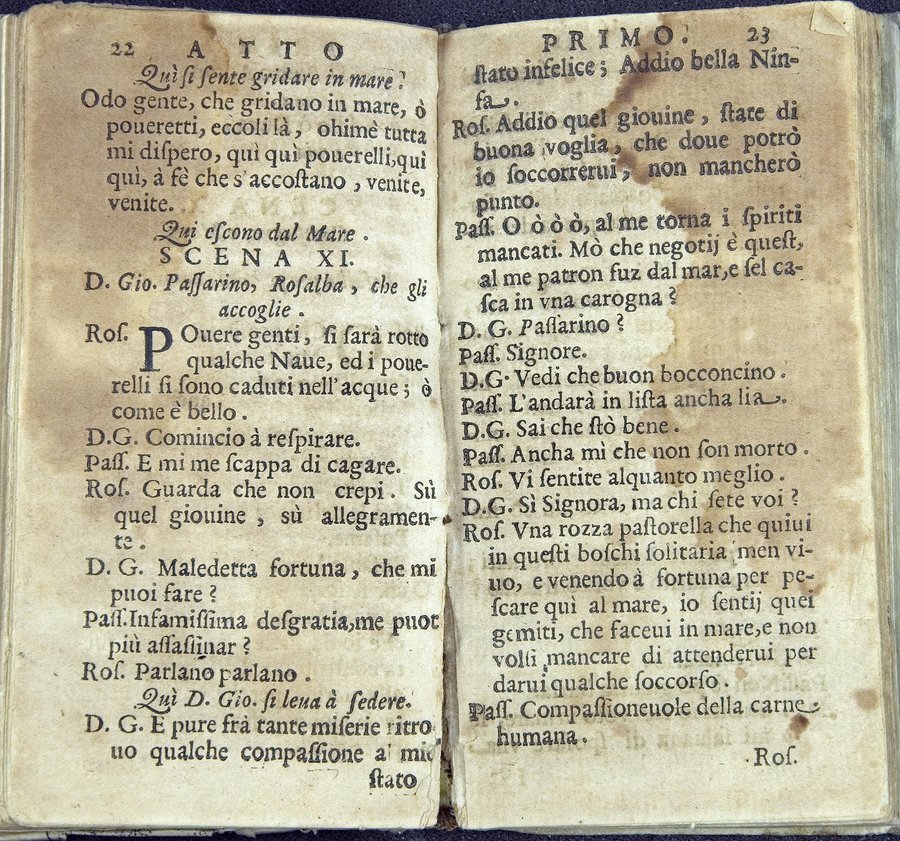 22 ATTO
Quì si ſente gridare in mare!
Odo gente, che gridano in mare, ò
poueretti, eccoli là, ohimè tutta
mi diſpero, quì quì pouerelli, quì
quì, à fè che s'accoſtano, venite,
venite.
Qui eſcono dal Mare.
SCENA XI.
D. Gio. Paſſarino, Roſalba, che gli
accoglie.
Roſ. POuere genti, ſi ſarà rotto
qualche Naue, ed i poue-
relli ſi ſono caduti nell'acque; ò
come è bello.
D.G. Comincio à reſpirare.
Paſſ. E mi me ſcappa di cagare.
Roſ. Guarda che non crepi. Sù
quel giouine, sù allegramen-
te.
D. G. Maledetta fortuna, che mi
puoi fare?
Paſſ. Infamiſſima deſgratia, me puot
più aſſaſſinar?
Roſ. Parlano parlano.
Quì D. Gio. ſi leua à ſedere.
D. G. E pure frà tante miſerie ritro
uo qualche compaſſione al mio
ſtato
PRIMO. 23
ſtato infelice; Addio bella Nin-
fa.
Roſ. Addio quel giouine, ſtate di
buona voglia, che doue potrò
io ſoccorrerui, non mancherò
punto.
Paſſ. O ò ò ò, al me torna i ſpiriti
mancati. Mò che negotij è queſt,
al me patron fuz dal mar, e ſel ca-
ſca in vna carogna?
D. G. Paſſarino?
Paſſ. Signore.
D.G. Vedi che buon bocconcino.
Paſſ. L'andarà in liſta ancha lia.
D.G. Sai che ſtò bene.
Paſſ. Ancha mì che non ſon morto.
Roſ. Vi ſentite alquanto meglio.
D.G. Sì Signora, ma chi ſete voi?
Roſ. Vna rozza paſtorella che quiui
in queſti boſchi ſolitaria men vi-
uo, e venendo à fortuna per pe-
ſcare quì al mare, io ſentij quei
gemiti, che faceui in mare, e non
volſi mancare di attenderui per
darui qualche ſoccorſo.
Paſſ. Compaſſioneuole della carne
humana.
Roſ.